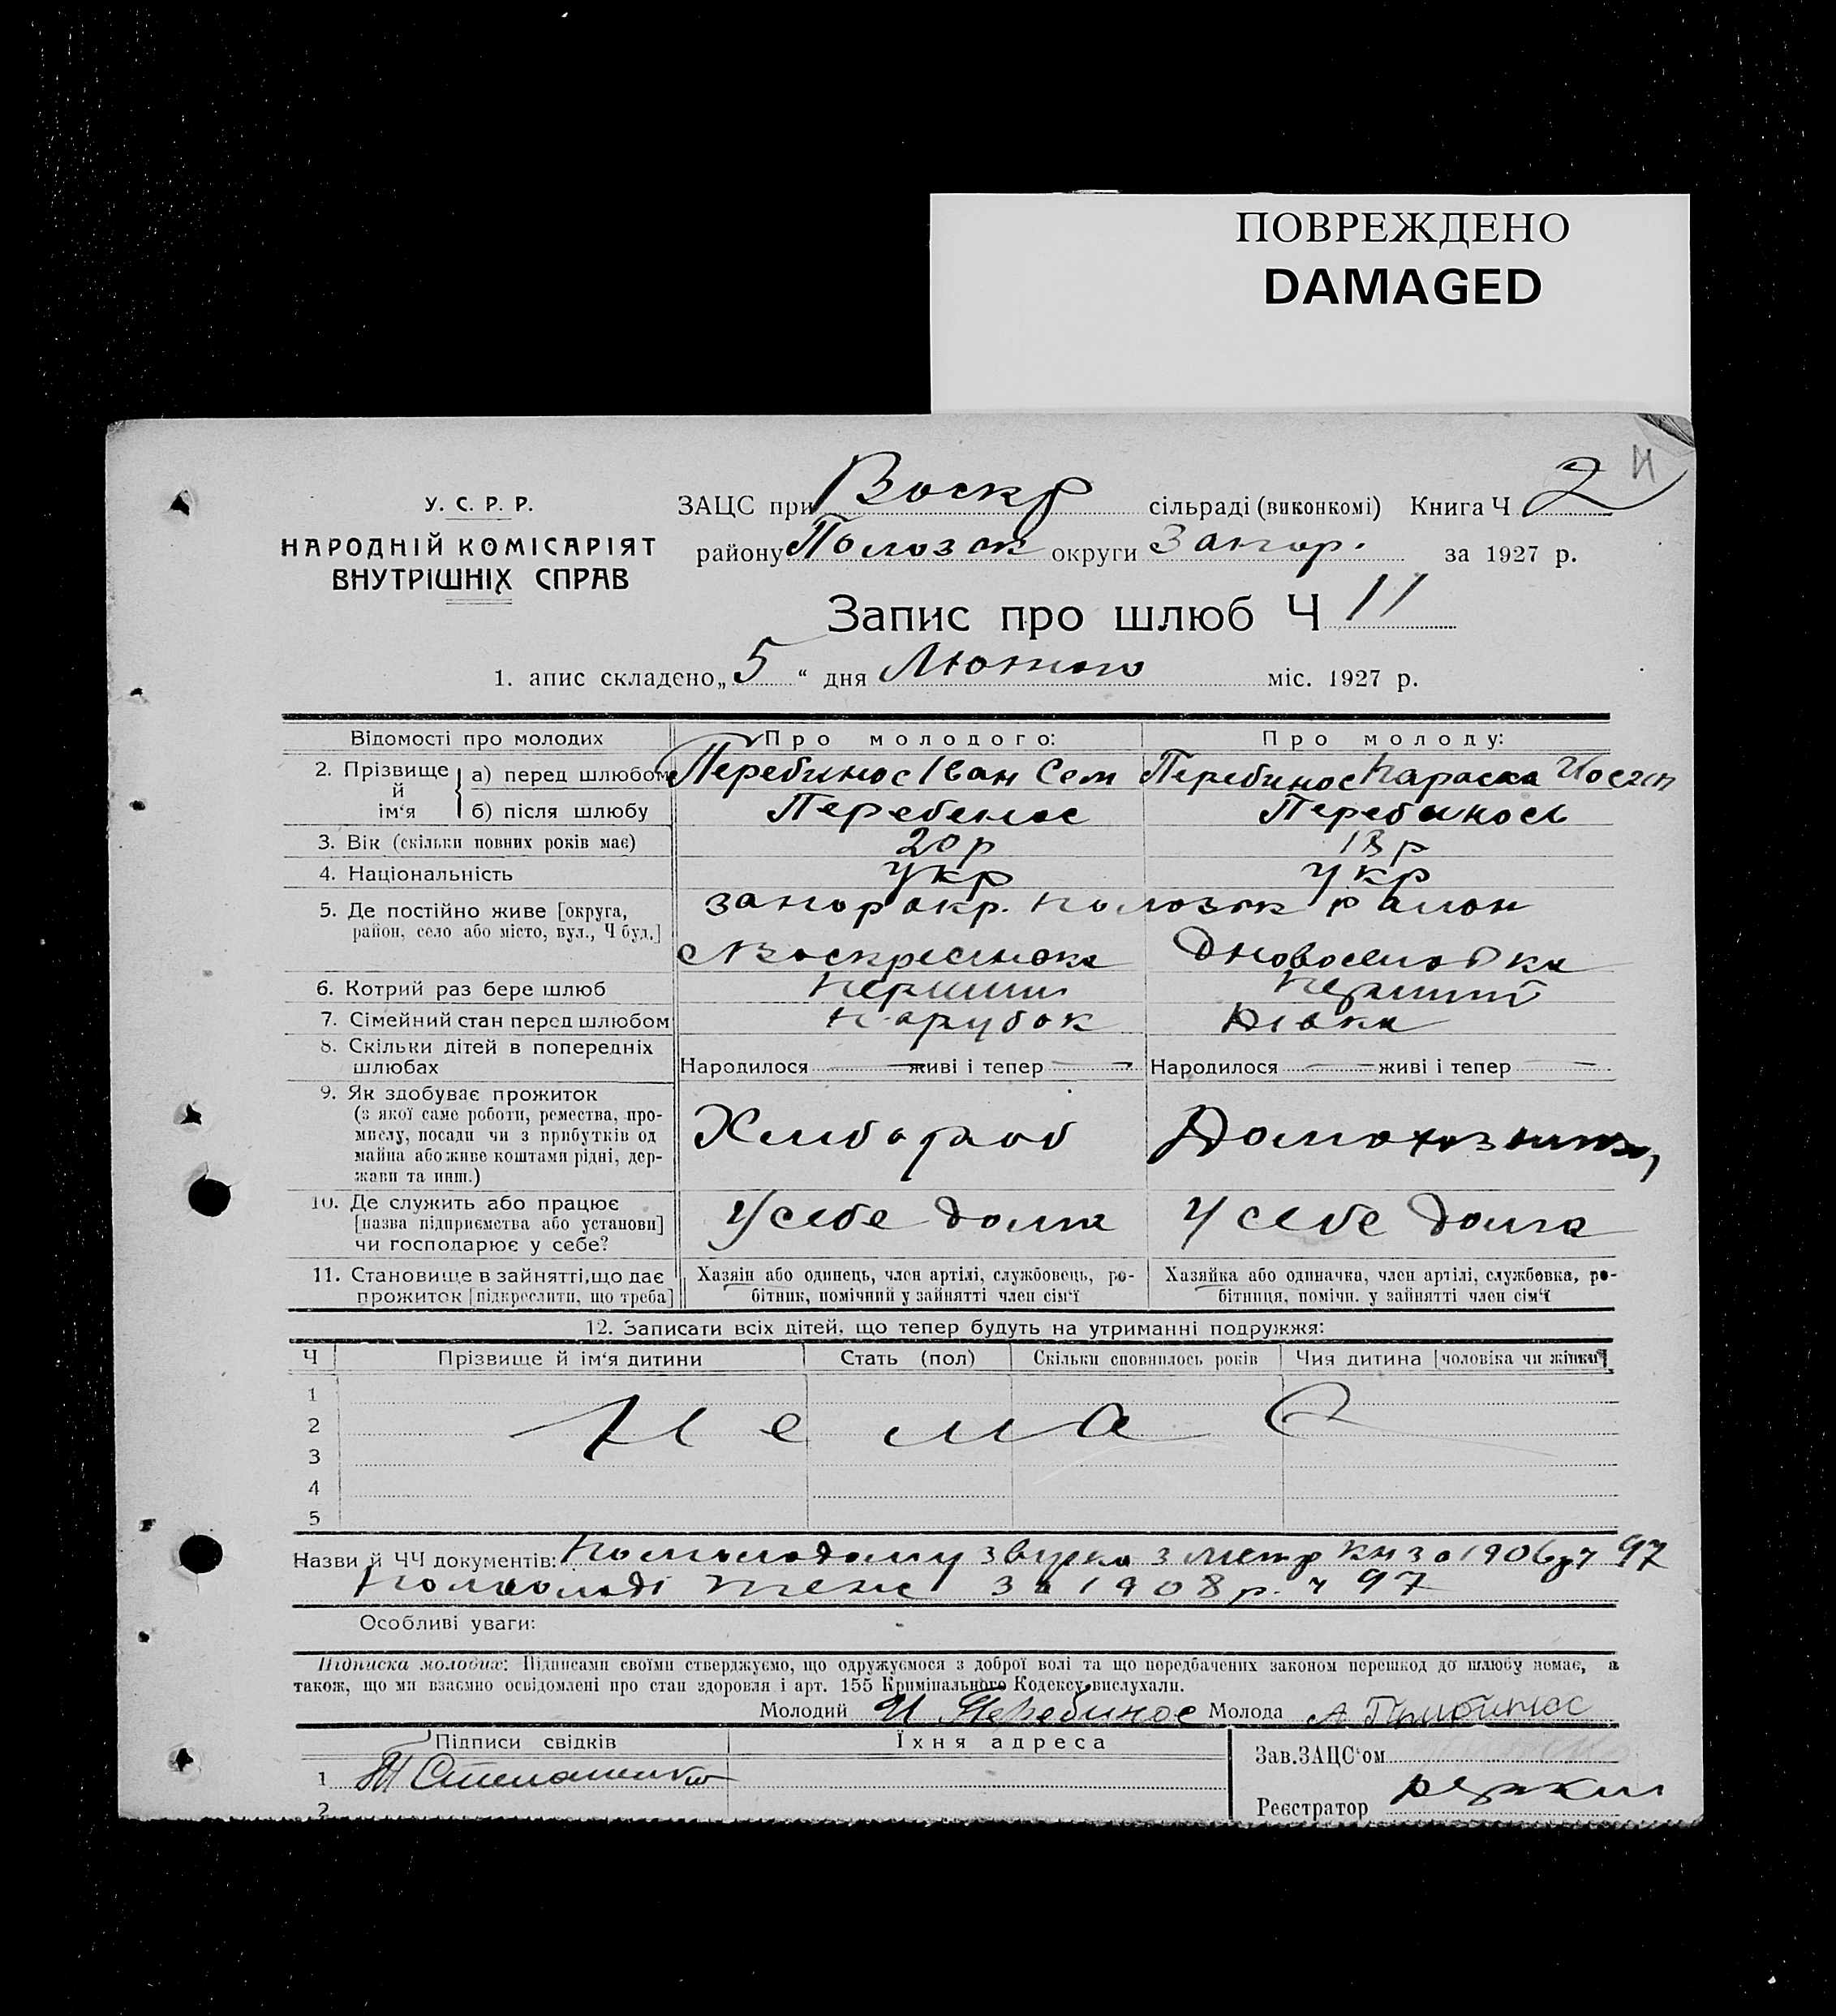 ПОВРЕЖДЕНО
DAMAGED
У. С. Р. Р.
НАРОДНІЙ КОМІСАРІЯТ
ВНУТРІШНІХ СПРАВ
ЗАЦС при Воскр сільраді (виконкомі) Книга Ч 2
району Пологов округи Запор. за 1927 р.
Запис про шлюб Ч 11
1. апис складено „ 5 “ дня Лютого міс. 1927 р.
Відомості про молодих Про молодого: Про молоду:
2. Прізвище й ім‘я а) перед шлюбом Перебинос Іван Сем Перебинос Параска Йосип
б) після шлюбу Перебенос Перебинось
3. Вік (скільки повних років має) 20 р 18 р
4. Національність Укр Укр
5. Де постійно живе [округа, район, село або місто, вул., Ч буд.] запор окр. район
с Воскресенска Новоселовка
6. Котрий раз бере шлюб Перший Перший
7. Сімейний стан перед шлюбом Парубок Дівка
8. Скільки дітей в попередніх шлюбах Народилося — живі і тепер — Народилося — живі і тепер —
9. Як здобуває прожиток
(з якої саме роботи, ремества, про-
мислу, посади чи з прибутків од
майна або живе коштами рідні, дер-
жави та инш.) Хлибороб
10. Де служить або працює
[назва підприємства або установи]
чи господарює у себе? У себе дома У себе дома
11. Становище в зайнятті, що дає
прожиток [підкреслити, що треба] Хазяїн або одинець, член артілі, службовець, ро-
бітник, помічний у зайнятті член сім‘ї Хазяйка або одиначка, член артілі, службовка, ро-
бітниця, помічн. у зайнятті член сім‘ї
12. Записати всіх дітей, що тепер будуть на утриманні подружжя:
Ч Прізвище й ім‘я дитини Стать (пол) Скільки сповнилось років Чия дитина [чоловіка чи жінки]
1
2 Немає
3
4
5
Назви й ЧЧ документів: По молодому з метр кн за 1906 р ч 97
По молоді теж за 1908 р. ч 97
Особливі уваги:
Підписка молодих: Підписами своїми стверджуємо, що одружуємося з доброї волі та що передбачених законом перешкод до шлюбу немає, а
також, що ми взаємно освідомлені про стан здоровля і арт. 155 Кримінального Кодексу вислухали.
Молодий И Перебинос Молода А
Підписи свідків Їхня адреса Зав. ЗАЦС‘ом
1 Степаненко
2 Реєстратор